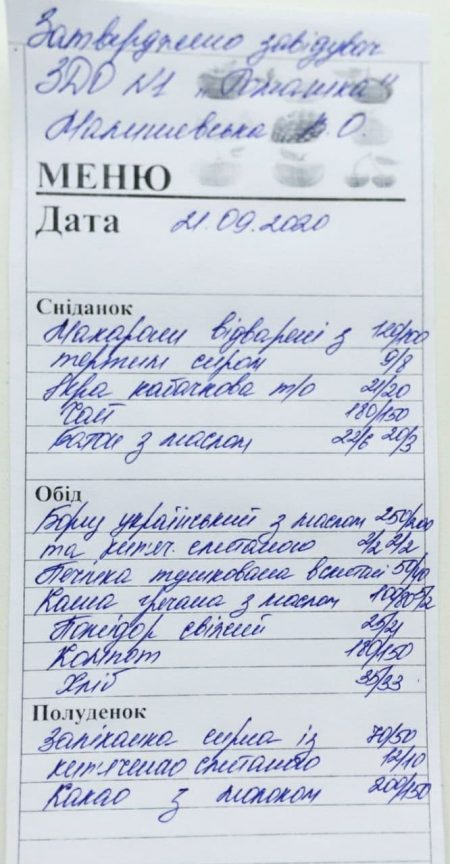 Затверджено завідувач
ЗДО №1 "Ромашка"
Малишевська О.
МЕНЮ
Дата 21.09.2020
Сніданок
Макарони відварені з 120/100
тертим сиром 9/8
Ікра кабачкова т/о 21/20
Чай 180/150
Батон з маслом 22/6 20/3
Обід
Борщ український з маслом 250/200
та кип'яч. сметаною 2/2 2/2
Печінка тушкована в сметані 50/40
Каша гречана з маслом 100/80/2
Помідор свіжий 25/21
Компот 180/150
Хліб 35/33
Полуденок
Запіканка сирна із 70/50
кип'яченою сметаною 12/10
Какао з молоком 200/150